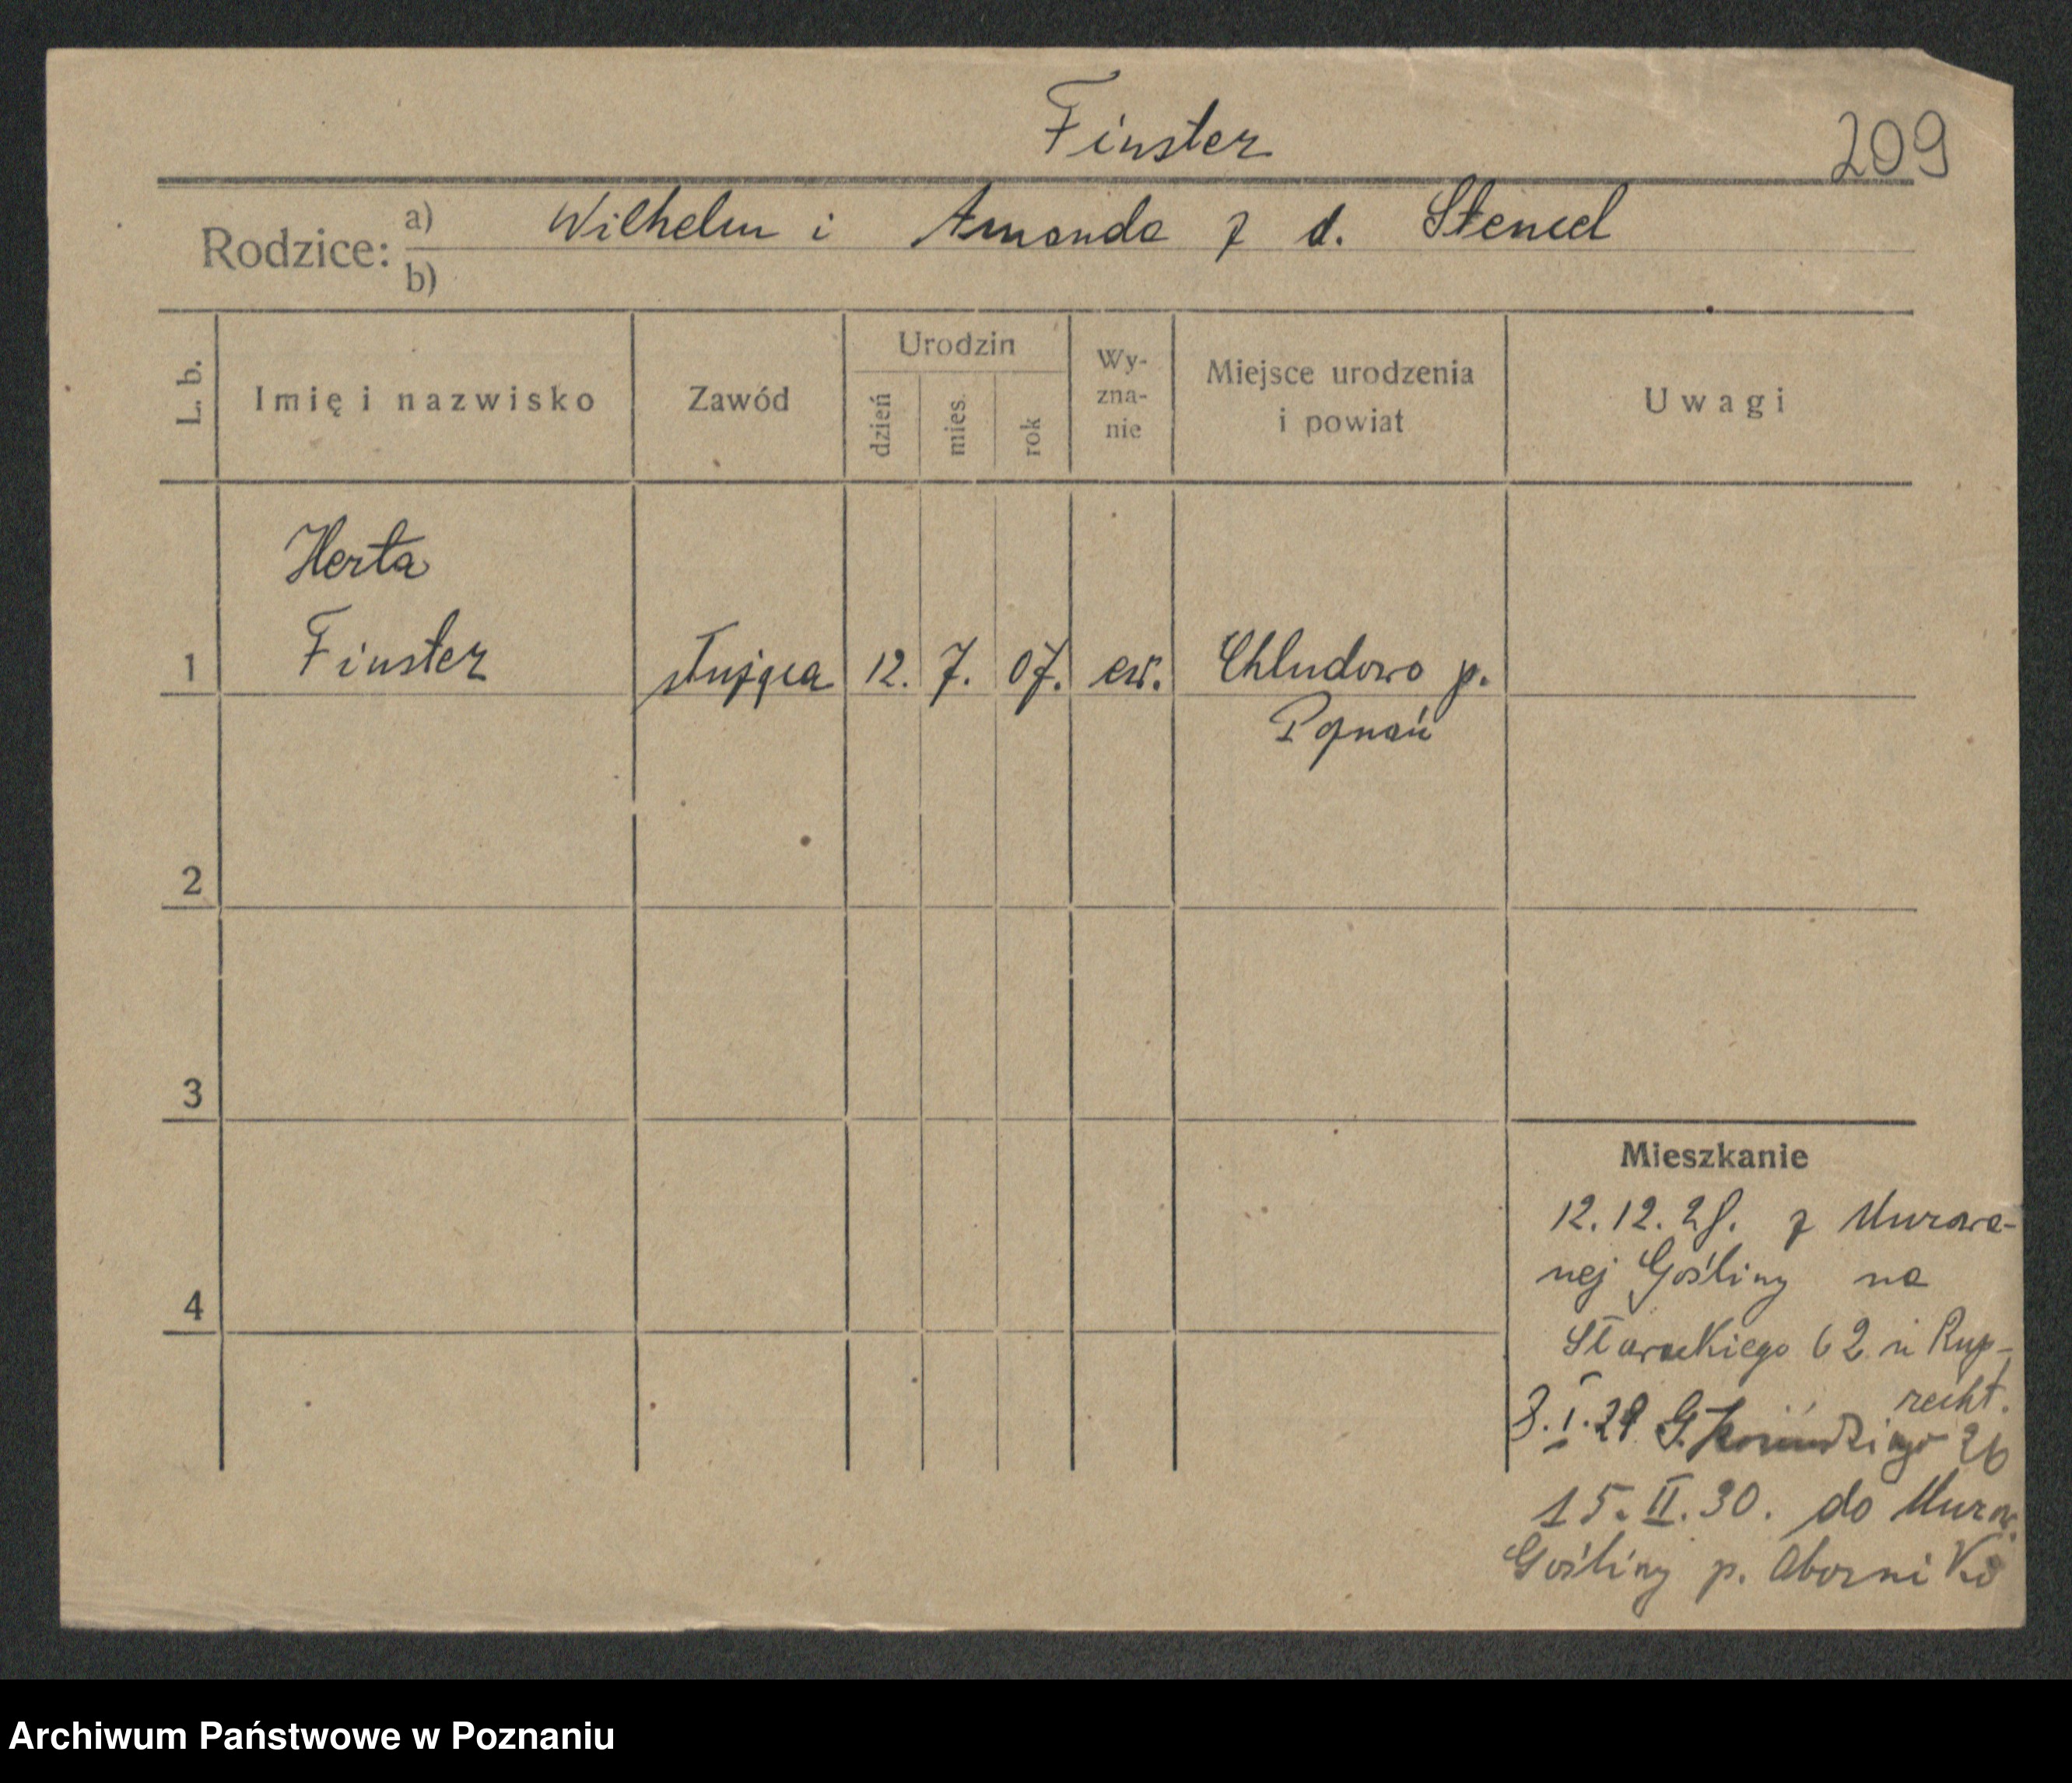 Finster
209
Rodzice: a) Wilhelm i Amanda z d. Stencel
b)
L. b.
Imię i nazwisko
Zawód
Urodzin
dzień
mies.
rok
Wy-
zna-
nie
Miejsce urodzenia
i powiat
Uwagi
Herta
1 Finster służąca 12. 7. 07. ew. Chludowo p.
Poznań
2
3
4
Mieszkanie
12.12.28. z Murowa-
nej Gośliny na
62 u Rup-
recht.
G. 26
15. II. 30. do Murow.
Gośliny p. Oborniki
Archiwum Państwowe w Poznaniu